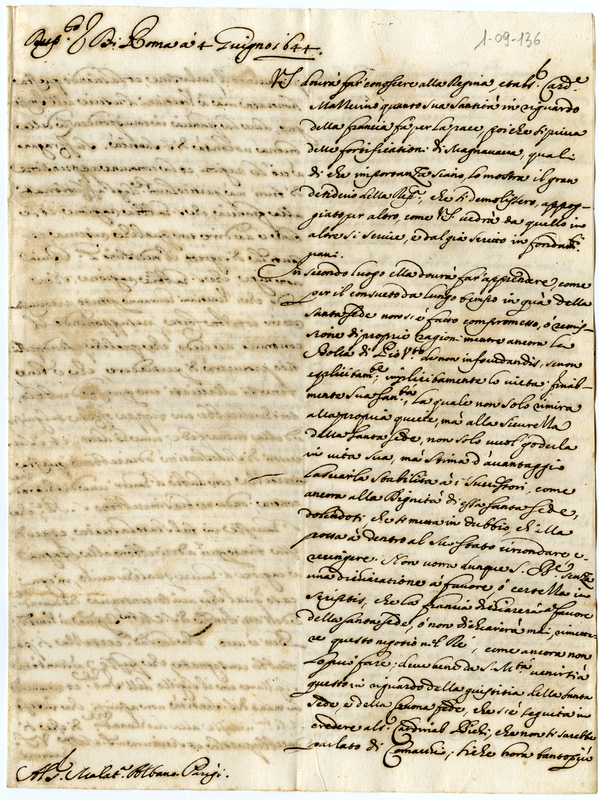 Di Roma à 4 Giugno 1644.
1-09-136
V.S. dovrà far conoscere alla Regina, et al S.r Card.e
Mazzerino quanto sua Santità in riguardo
della francia fà per la pace, poiche si priva
delle fortificationi di Magnavacca, quali
di che importanza siano, lo mostra il gran
desiderio della Rep.ca, che si demolissero, appog-
giato per altro, come V.S. vedrà da quello in
altre si scrive, è dal già scritto in fondam.ti
vani.
In secondo luogo ella dovrà far apprendere, come
per il consueto da lungo tempo in quà della
Santa Sede non si è fatto compromesso, ò remis-
sione di proprie ragioni mentre ancora la
Bolla di Pio V.to de non infeudandis, se non
esplicitam.te, implicitamente lo vieta: final-
mente sua San.tà, la quale non solo rimira
alla propria quiete, mà alla sicurezza
della Santa Sede, non solo vuol goderla
in vita sua, mà stima d'avantaggio
lasciarla stabilita à i Successori, come
ancora alla Dignità di essa Santa Sede,
dolendosi, che si metta in dubbio ch'ella
possa à dentro al suo stato circondare e
restringere. Non vorrà dunque S. B.e senza
una dichiaratione à favore, ò certezza in
scriptis, che la francia dichiarerà à favore
della Santa Sede, ò non dichiarerà mai, rimette-
re questo negotio nel Rè, come ancora non
lo può fare; deve bene da S. M.tà venir sì à
questo in riguardo della giustitia della Santa
Sede è della buona fede, che si è seguita in
credere al S.r Cardinal Bichi, che non si sarebbe
parlato di Comacchio; sì che hora tanto più
Albano. Parigi.